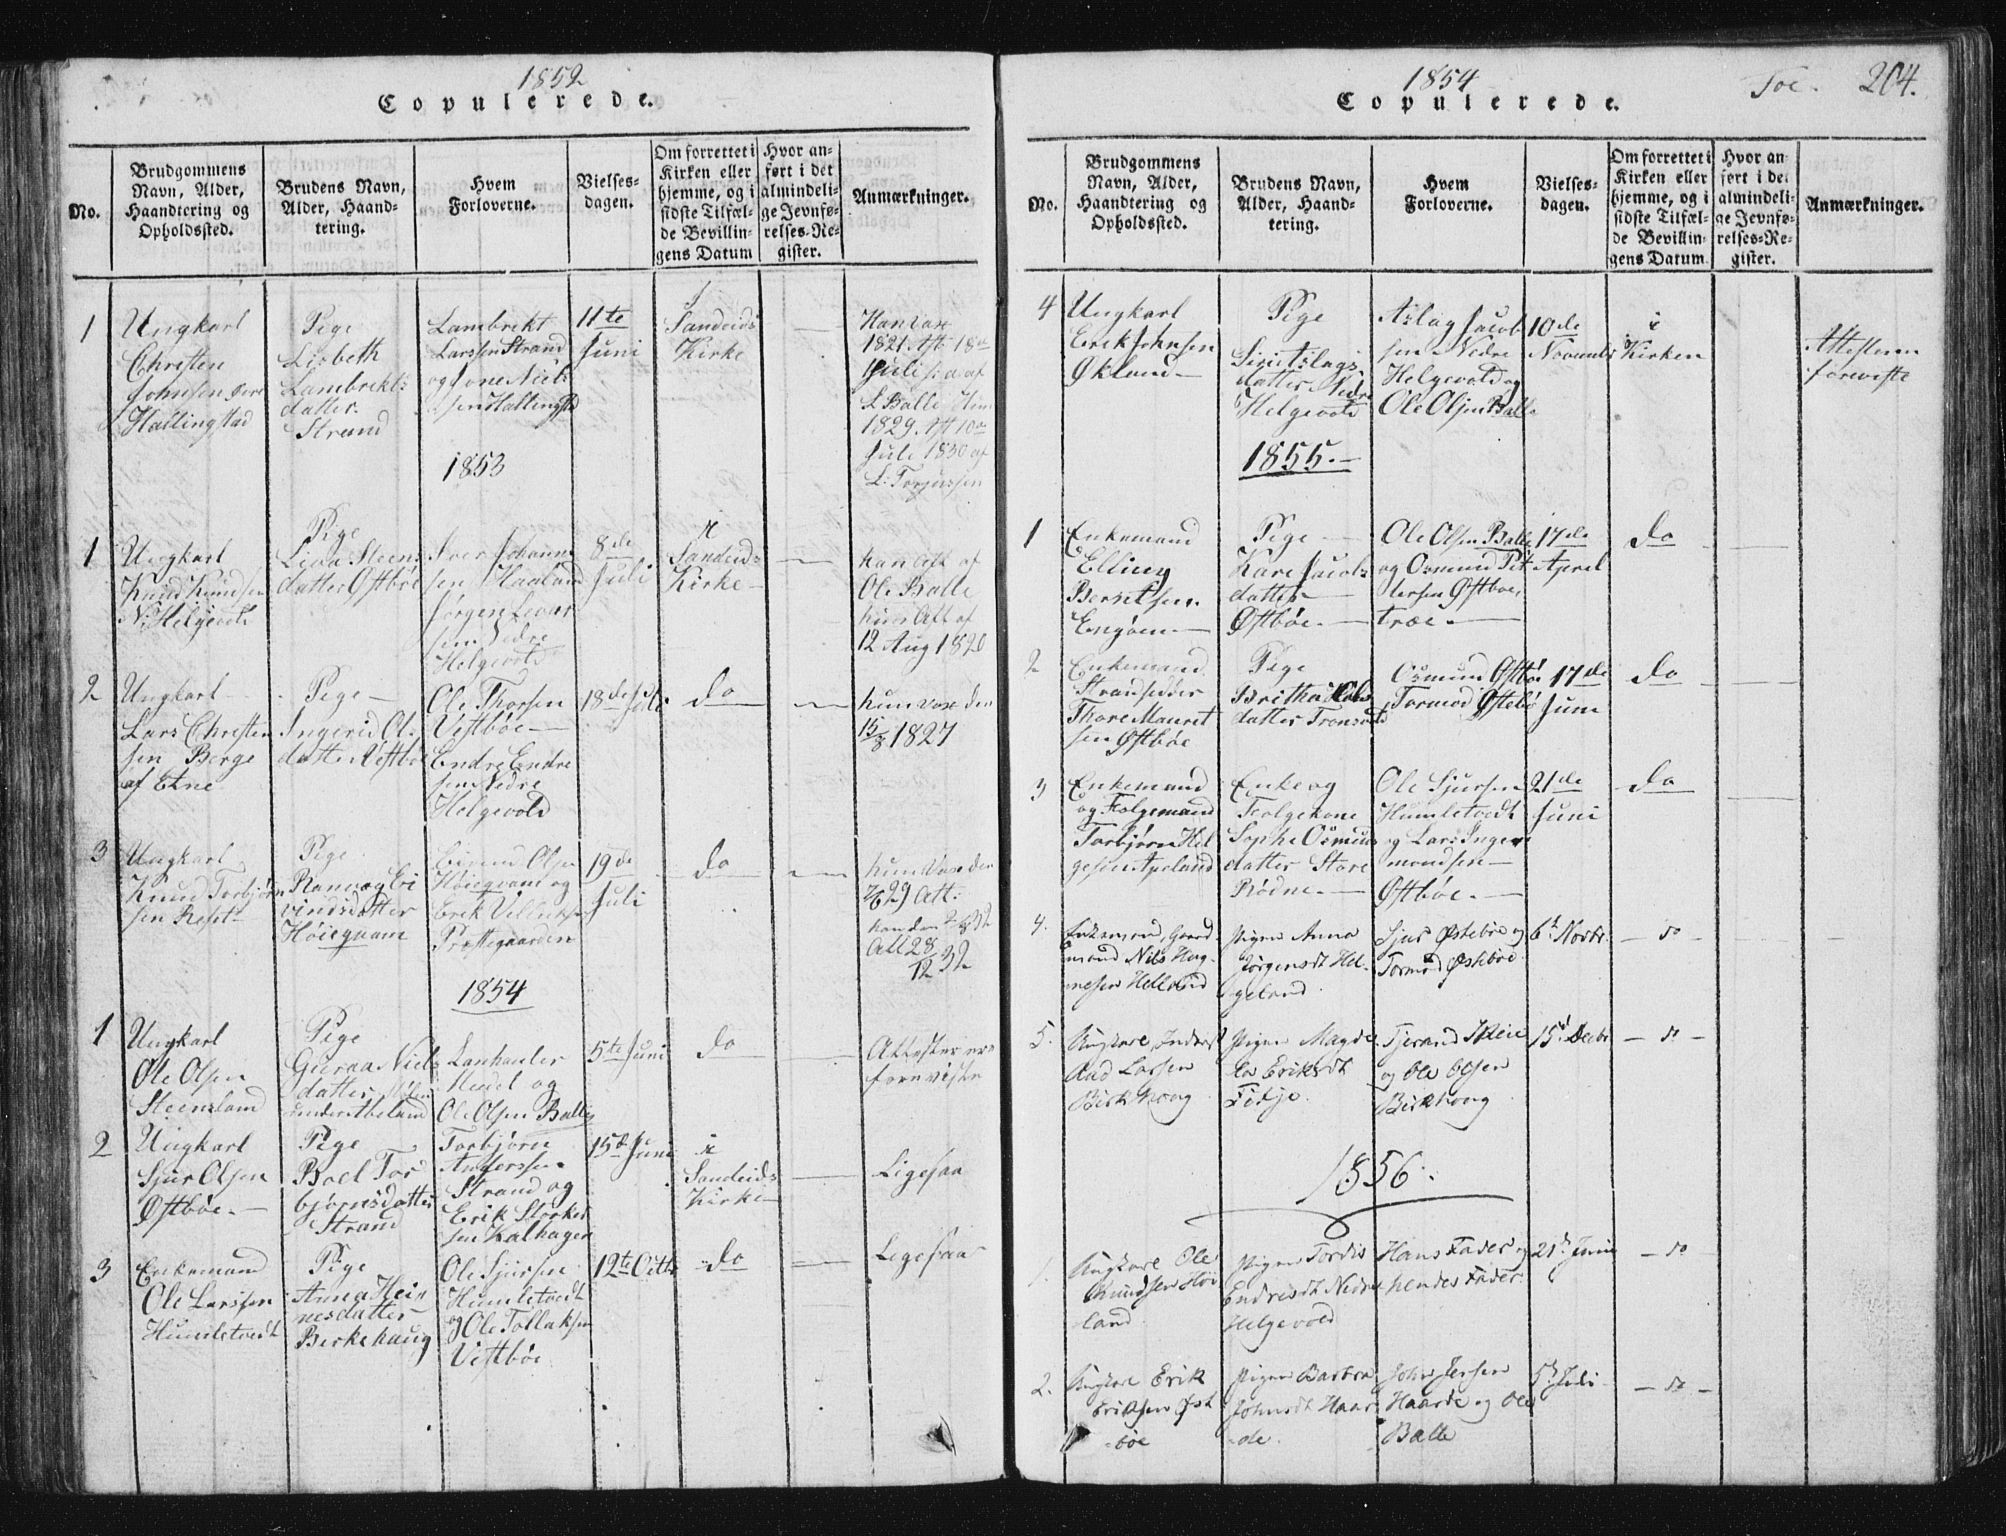 1852
Copulerede.
No.
Brudgommens
Navn, Alder,
Haandtering og
Opholdssted.
Brudens Navn,
Alder, Haand-
tering.
Hvem
Forloverne.
Vielses-
dagen.
Om forrettet i
Kirken eller
hjemme, og i
sidste Tilfæl-
de Bevillin-
gens Datum
Hvor an-
ført i det
almindeli-
ge Jevnfø-
relses-Re-
gister.
Anmærkninger.
1
Ungkarl
Christen
Johnsen
Hallingstad
Pige
Lisbeth
Lambrekts
datter
Strand
Lambrekt
Larssen Strand
og Tone Niels
sen Hallingst
11te
Juni
i
Sandeids
Kirke
Han vax
1821. Att. 18de
Juli af
L Balle Hun
1829. Att 10de
Juli 1830 af
L. Torgersen
1853
1
Ungkarl
Knud Knudsen
N. Helgevold
Pige
Lisa Steens
datter Østbøe
Iver Johann
sen Haaland
Jørgen Iver
sen Nedre
Helgevold
8de
Juli
i
Sandeids
Kirke
han Att af
Ole Balle
hun Att af
12 Aug 1820
2
Ungkarl
Lars Christen
sen Berge
af Etne
Pige
Ingerid Ols
datter Vestbøe
Ole Thorsen
Vestbøe
Endre Endre
sen Nedre
Helgevold
18de Juli
do
hun vax den
15/8 1827
3
Ungkarl
Knud Torbjørn
sen
Pige
Rannog Ei
vindsdatter
Høiegvam
Eivind Olsen
Høiegvam og
Erik
Præstegaarden
19de
Juli
do
hun vax den
29 Att:
han den
Att 28/12 32
1854
1
Ungkarl
Ole Olsen
Steensland
Pige
Niels
datter
under Abeland
Lanhandler
og
Ole Olsen Balle
5te Juni
do
Attester ere
foreviste
2
Ungkarl
Sjur Olsen
Østbøe
Pige
Boel Tor
bjørnsdatter
Strand
Torbjørn
Anderssen
Strand og
Erik Storkes
sen Kalhagen
15de Juni
i
Sandeids
Kirke
Ligesaa
3
Enkemand
Ole Larssen
Humletvedt
Pige
Anna Hein
nesdatter
Birkehaug
Ole Sjursen
Humletvedt
og Ole Tollaksen
Vestbøe
12te Octb
do
Ligesaa
1854
Copulerede.
Toe.
204.
No.
Brudgommens
Navn, Alder,
Haandtering og
Opholdssted.
Brudens Navn,
Alder, Haand-
tering.
Hvem
Forloverne.
Vielses-
dagen.
Om forrettet i
Kirken eller
hjemme, og i
sidste Tilfæl-
de Bevillin-
gens Datum
Hvor an
ført i det
almindeli-
ge Jevnfø-
relses-Re-
gister.
Anmærkninger.
4
Ungkarl
Erik Johnsen
Økland
Pige
datter Nedre
Helgevold
Aslag Jacob
sen Nedre
Helgevold og
Ole Olsen Balle
10de
Novembr
i
Kirken
Attesterne
foreviste
1855.
1
Enkemand
Elling
Berentsen
Engøen
Pige
Kari Jacobs
datter
Østbøe
Ole Olsen Balle
og Osmund Pet
tersen Østboe,
træe.
17de
April
do
2
Enkemand
Strandsidder
Thore Maurit
sen Østbøe
Pige
Britha
datter Tronsvold
Osmund Østbø
Tormod Østebø
17de
Juni
do
3
Enkemand
og Folgemand
Torbjørn Hel
gesen Apeland
Enke og
Folgekone
Sophe Osmun
datter Store
Rødne
Ole Sjursen
Humletvedt
og Lars Inge
mondsen
Østbøe
21de
Juni
do
4.
Enkemand, Gaard-
mand Nils Hag-
nesen Helland
Pigen Anna
Jørgensdt Hel-
geland
Sjur Østebøe og
Tormod Østebøe
6t Novbr.
do
5.
Ungkarl, Inderst
Aad Larsen
Birkhoug
Pigen Magde
la Eriksdt
Fidje
Tjerand Skeie
og Ole Olsen
Birkhoug
15d Decbr
do
1856.
1.
Ungkarl Ole
Knudsen Høi
land
Pigen Tordis
Endresdt Nedre
Helgevold
Hans Fader og
hendes Fader.
21d Juni
do
2.
Ungkarl Erik
Eriksen Øst
-bøe
Pigen Barbra
Johnsdt Haar
-de
John Jensen
Haarde og Ole
Balle
5t Juli
do